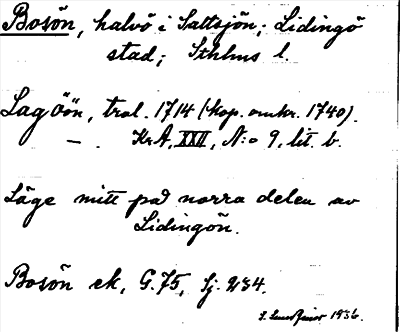 Bosön, halvö i Saltsjön; Lidingö
stad; Sthlms l.
Lagöön, tral. 1714 (kop. omkr. 1740).
— . Kr A, XXII, N:o 9, lit. b.
Läge mitt på norra delen av
Lidingön.
Bosön ek, G. 75, Sj. 234.
1936.